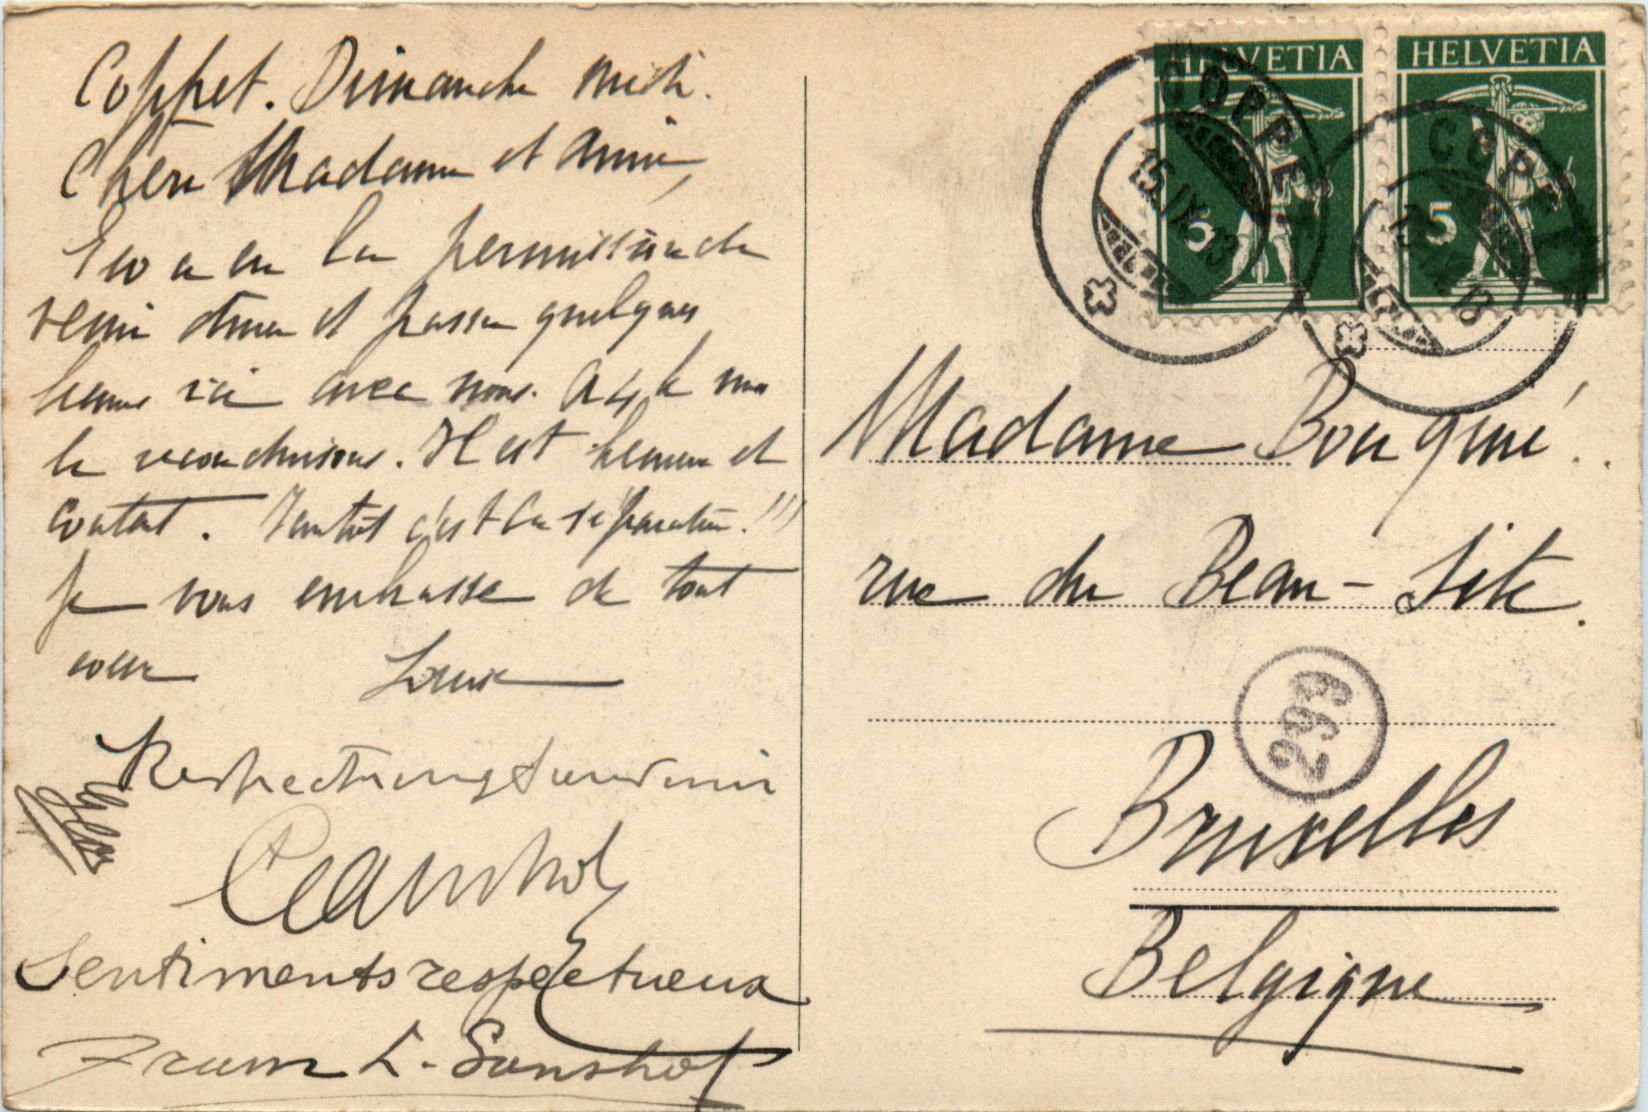 Coppet. Dimanche midi.
Chère Madame et Amie,
a eu la permission de
venir dîner et passer quelques
heures ici avec nous. A 4 h nous
le reconduisons. Il est heureux et
content. Tantôt c'est la séparation!!!
Je vous embrasse de tout
cœur Louise
Respectueux souvenir
Sentiments respectueux
L. Sanshof
HELVETIA
HELVETIA
5
5
COPPET
15.IX.13
COPPET
15.IX.13
Madame Bouquié.
rue du Beau-Site.
299
Bruxelles
Belgique